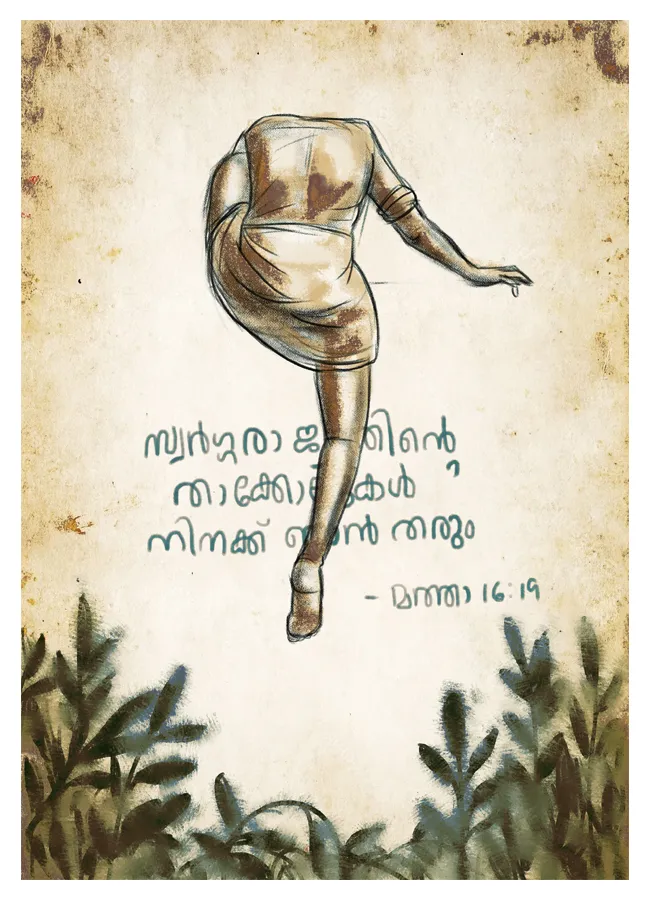 സ്വർഗ്ഗരാജ്യത്തിന്റെ
താക്കോലുകൾ
നിനക്ക് ഞാൻ തരും
- മത്താ 16:19